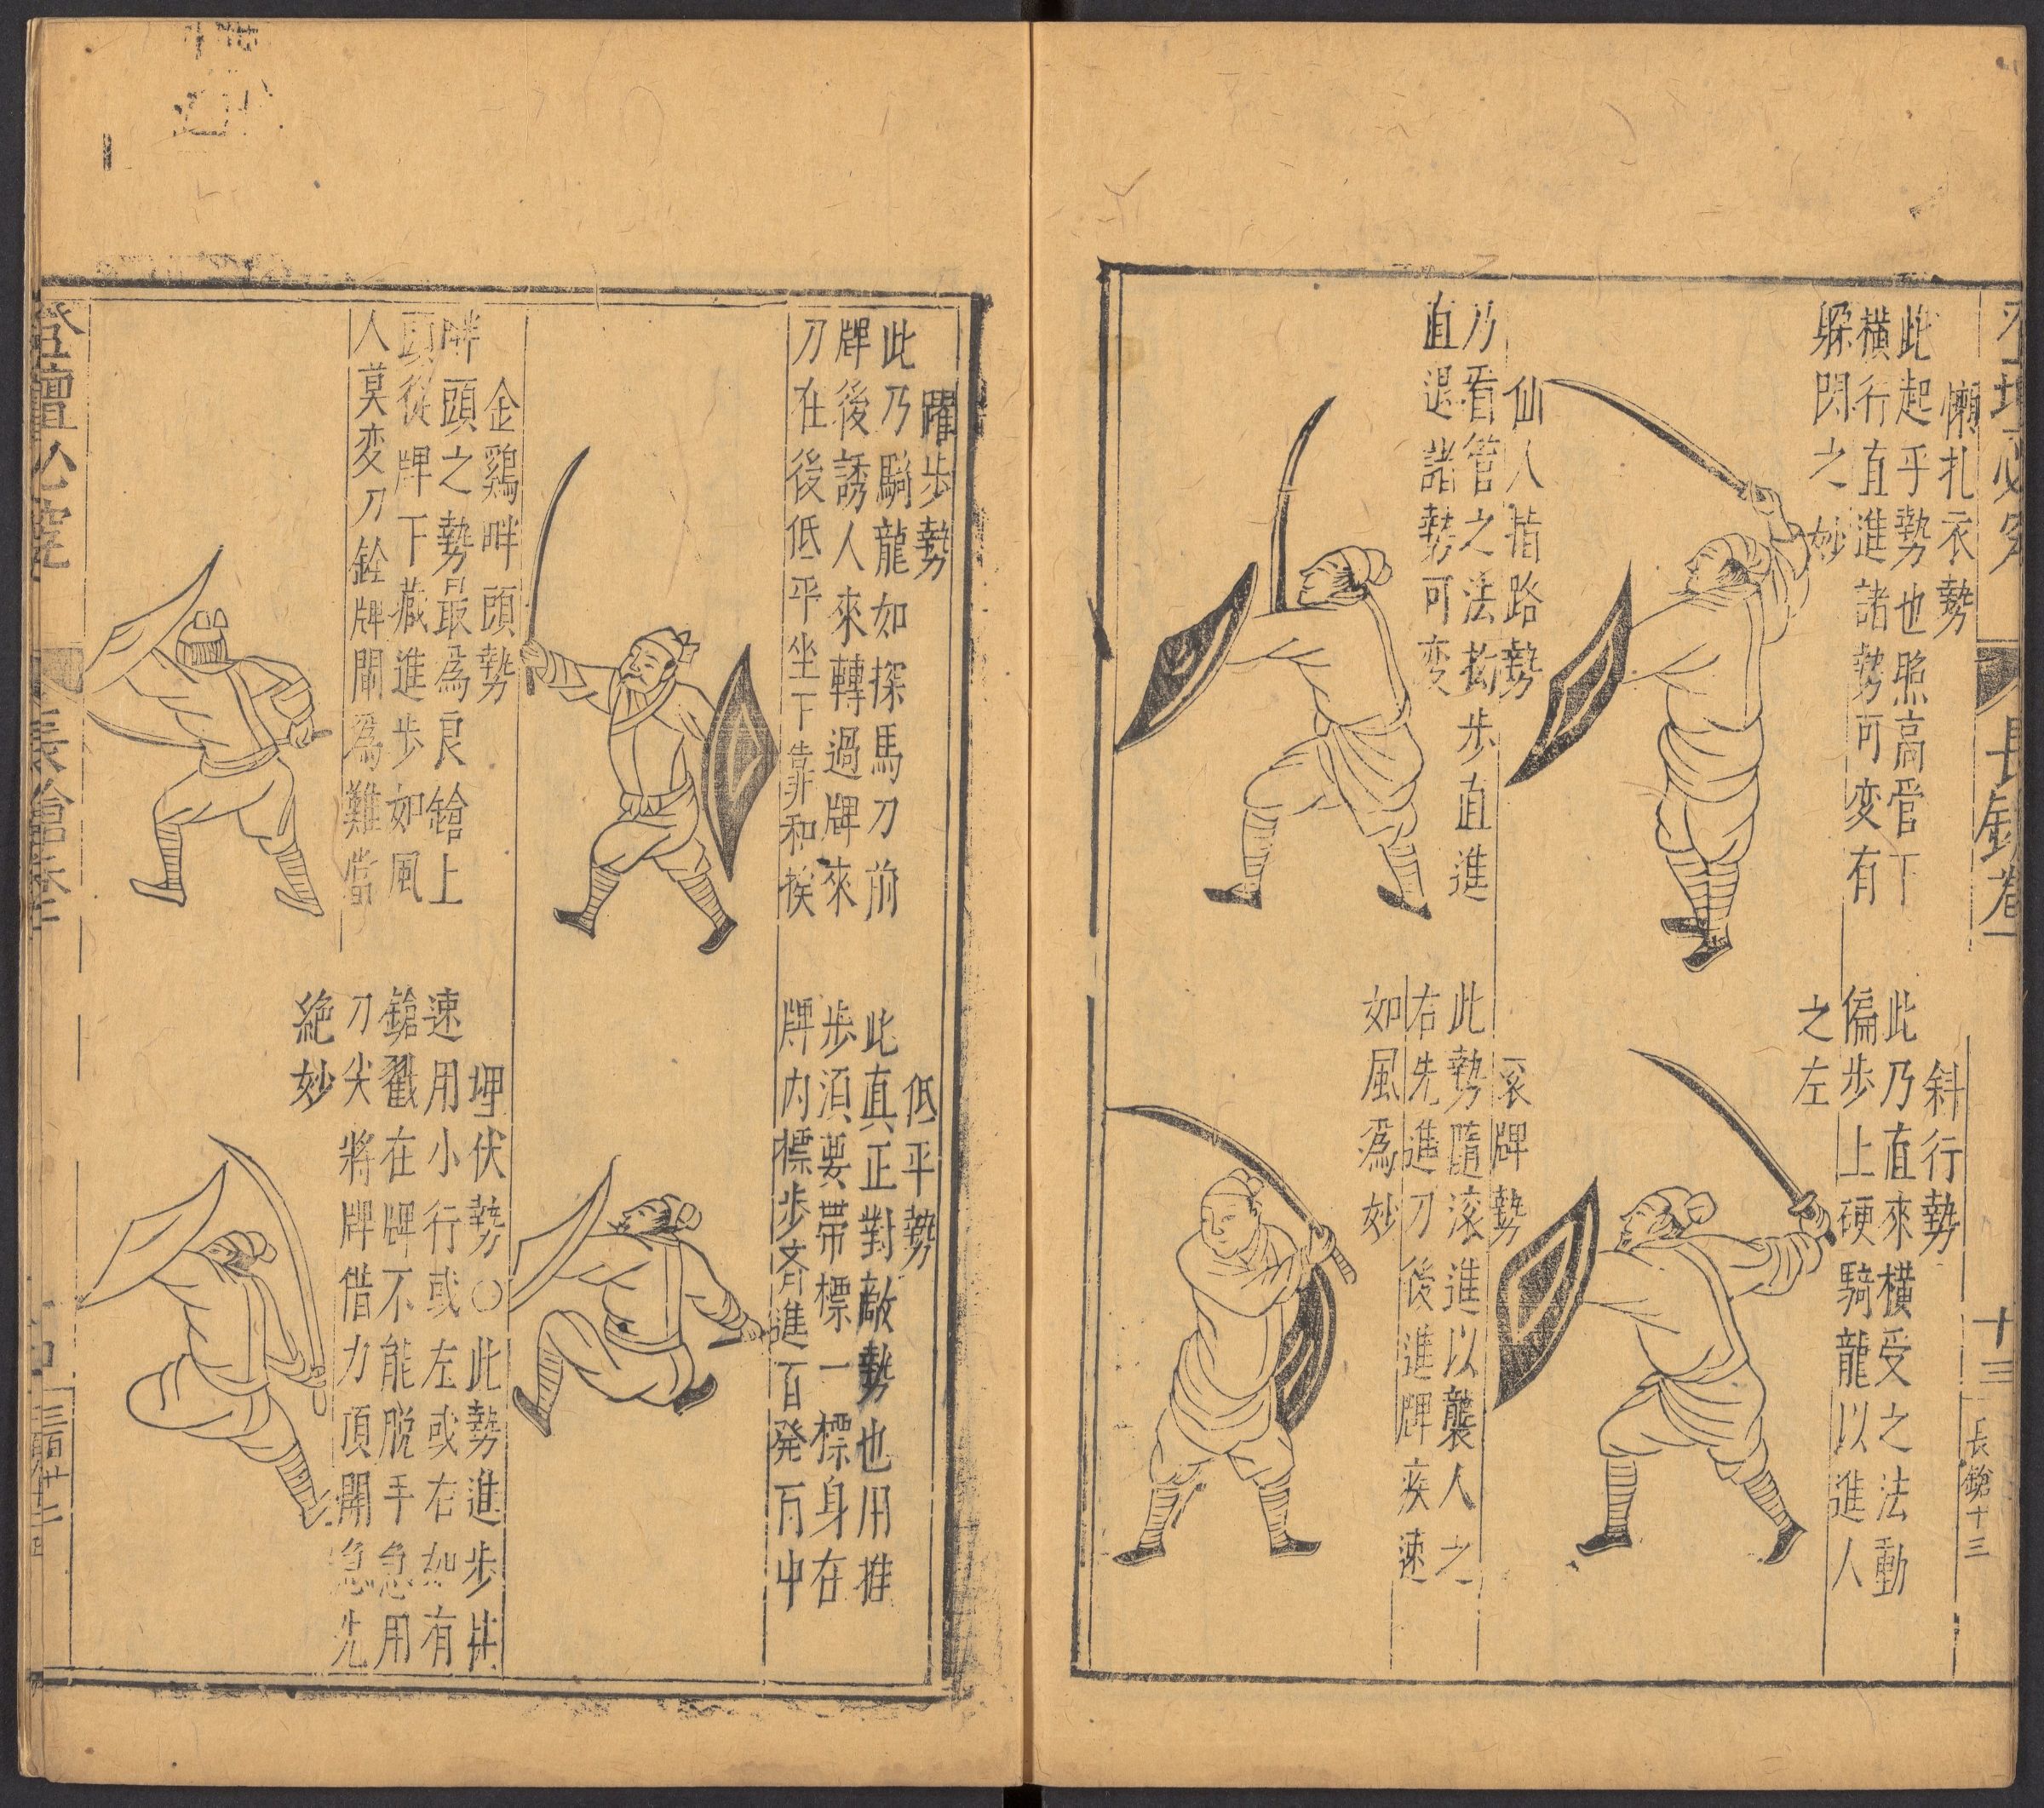 長鎗卷
十三
長鎗十三
懶扎衣勢
此起手勢也照高管下
橫行直進諸勢可变有
躲閃之妙
斜行勢
此乃直來橫受之法動
偏步上硬騎龍以進人
之左
仙人指路勢
乃看管之法抝步直進
直退諸勢可变
滚牌勢
此勢隨滚進以襲人之
右先進刀後進牌疾速
如風爲妙
躍步勢
此乃騎龍如探馬刀前
牌後誘人來轉過牌來
刀在後低平坐下靠和挨
低平勢
此真正對敵勢也用推
步須要帶標一標身在
牌内標步斉進百発百中
企鷄畔頭勢
畔頭之勢最爲良鎗上
頭從牌下藏進步如風
人莫变刀鎗牌閘爲難當
埋伏勢〇此勢進步比
速用小行或左或右如有
鎗戳在牌不能脱手急用
刀尖將牌借力頂開急先
絶妙
登壇必究
長鎗卷